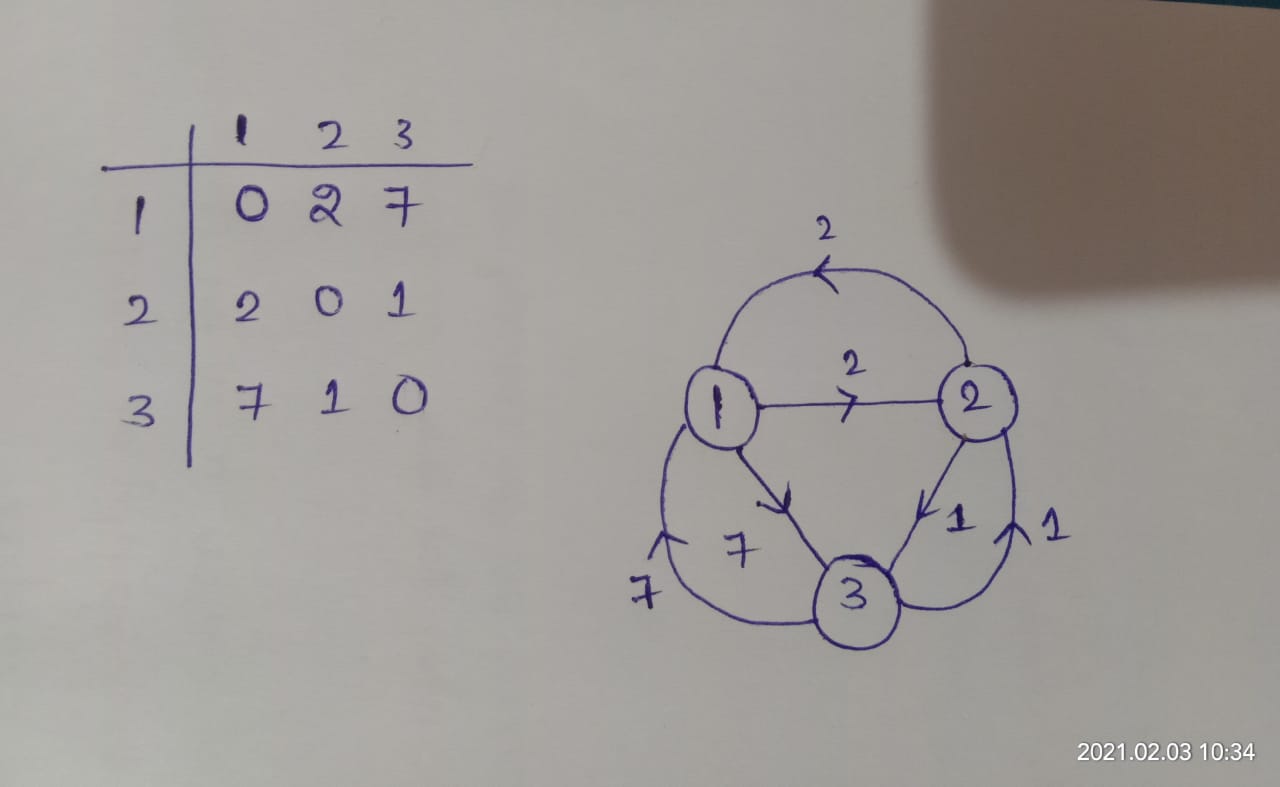 1 2 3
1 0 2 7
2 2 0 1
3 7 1 0
2
2
1
2
1
1
7
7
3
2021.02.03 10:34